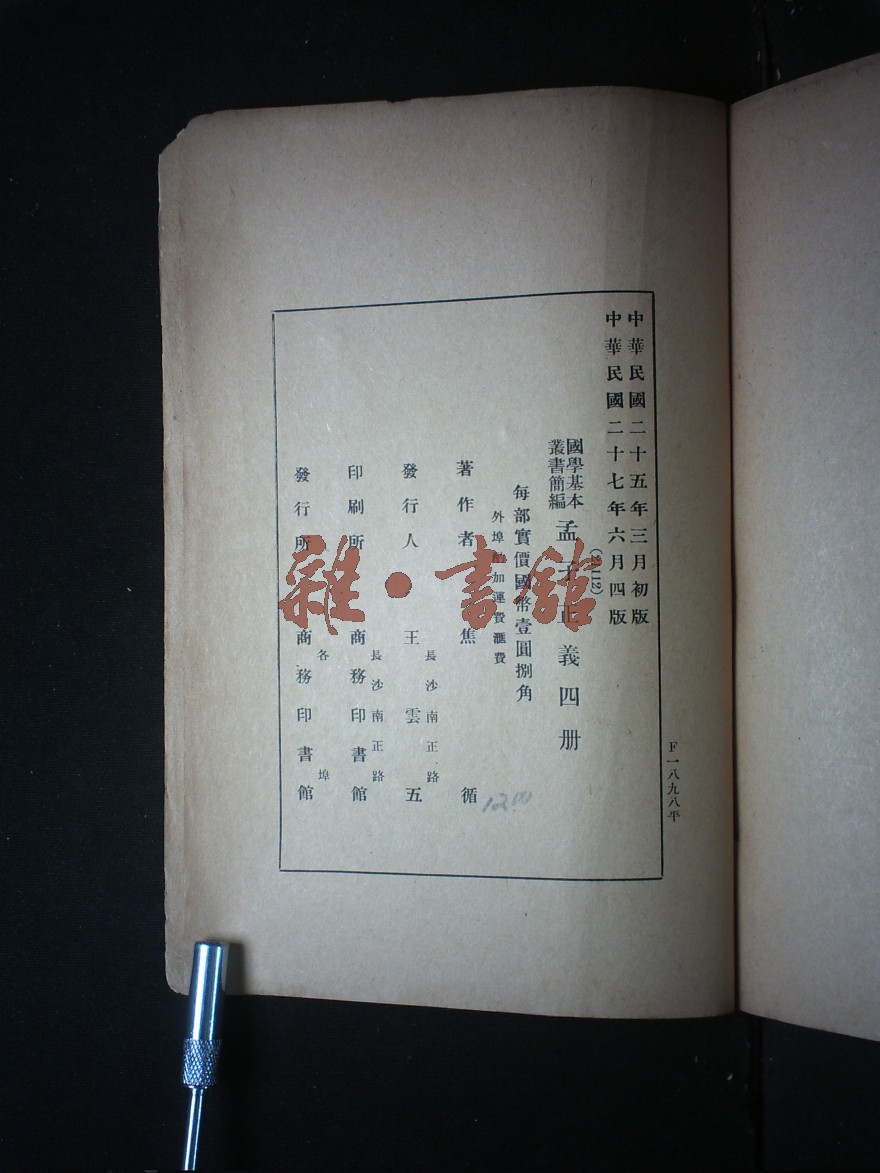 中華民國二十五年三月初版
中華民國二十七年六月四版
國學基本
叢書簡編
孟子正義四册
每部實價國幣壹圓捌角
外埠加運費滙費
著作者 焦循
發行人 王雲五
長沙南正路
印刷所 商務印書館
長沙南正路
發行所 商務印書館
各埠
F一八九八平
1200
雜·書館